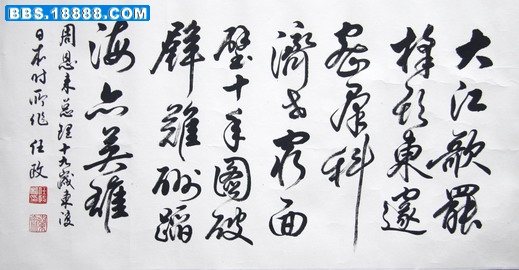 BBS.18888.COM
大江歌罷
掉頭東邃
密群科
濟世窮面
壁十年圖破
壁難酬蹈
海亦英雄
周恩来总理十九歲東渡
日本时所作 任政